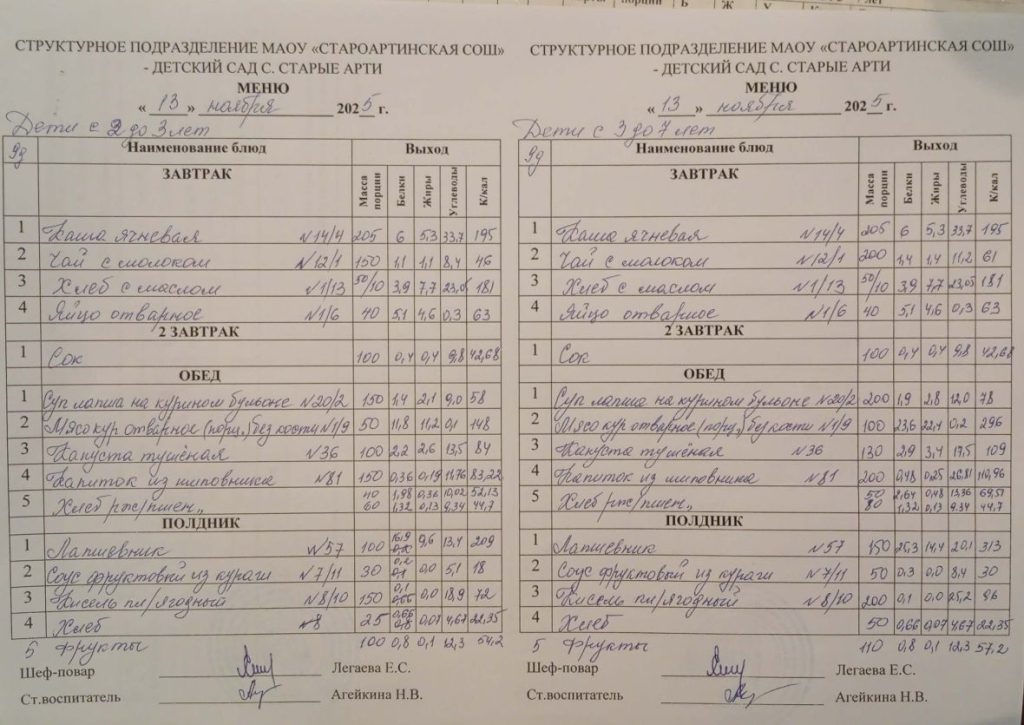 СТРУКТУРНОЕ ПОДРАЗДЕЛЕНИЕ МАОУ «СТАРОАРТИНСКАЯ СОШ»
- ДЕТСКИЙ САД С. СТАРЫЕ АРТИ
МЕНЮ
« 13 » ноября 2025 г.
Дети с 2 до 3 лет
9д Наименование блюд Выход
ЗАВТРАК Масса порции Белки Жиры Углеводы К/кал
1 Каша ячневая №14/4 205 6 5,3 33,7 195
2 Чай с молоком №12/1 150 1,1 1,1 8,4 46
3 Хлеб с маслом №1/13 50/10 3,9 7,7 23,05 181
4 Яйцо отварное №1/6 40 5,1 4,6 0,3 63
2 ЗАВТРАК
1 Сок 100 0,4 0,4 9,8 42,68
ОБЕД
1 Суп лапша на курином бульоне №20/2 150 1,4 2,1 9,0 58
2 Мясо кур отварное (порц.) без кости №1/9 50 11,8 11,2 0,1 148
3 Капуста тушёная №36 100 2,2 2,6 13,5 84
4 Напиток из шиповника №81 150 0,36 0,19 83,22
5 Хлеб рж/пшен 40 1,98 0,36 10,02 52,13
60 1,32 0,13 9,34 44,7
ПОЛДНИК
1 Лапшевник №57 100 16,9 9,6 13,4 209
2 Соус фруктовый из кураги №7/11 30 0,2 0,0 5,1 18
3 Кисель пл/ягодный №8/10 150 0,1 0,0 18,9 72
4 Хлеб 25 0,66 0,07 4,67 22,35
5 Фрукты 100 0,8 0,1 12,3 54,2
Шеф-повар Легаева Е.С.
Ст.воспитатель Агейкина Н.В.
СТРУКТУРНОЕ ПОДРАЗДЕЛЕНИЕ МАОУ «СТАРОАРТИНСКАЯ СОШ»
- ДЕТСКИЙ САД С. СТАРЫЕ АРТИ
МЕНЮ
« 13 » ноября 2025 г.
Дети с 3 до 7 лет
9д Наименование блюд Выход
ЗАВТРАК Масса порции Белки Жиры Углеводы К/кал
1 Каша ячневая №14/4 205 6 5,3 33,7 195
2 Чай с молоком №12/1 200 1,4 1,4 11,2 61
3 Хлеб с маслом №1/13 50/10 3,9 7,7 23,05 181
4 Яйцо отварное №1/6 40 5,1 4,6 0,3 63
2 ЗАВТРАК
1 Сок 100 0,4 0,4 9,8 42,68
ОБЕД
1 Суп лапша на курином бульоне №20/2 200 1,9 2,8 12,0 78
2 Мясо кур отварное (порц.) без кости №1/9 100 23,6 22,4 0,2 296
3 Капуста тушёная №36 130 2,9 3,4 17,5 109
4 Напиток из шиповника №81 200 0,48 0,25 26,81 110,96
5 Хлеб рж/пшен 50 2,64 0,48 13,36 69,51
80 1,32 0,13 9.34 44,7
ПОЛДНИК
1 Лапшевник №57 150 25,3 14,4 20,1 313
2 Соус фруктовый из кураги №7/11 50 0,3 0,0 8,4 30
3 Кисель пл/ягодный №8/10 200 0,1 0,0 25,2 96
4 Хлеб 50 0,66 0,07 4,67 22,35
5 Фрукты 110 0,8 0,1 12,3 57,2
Шеф-повар Легаева Е.С.
Ст.воспитатель Агейкина Н.В.